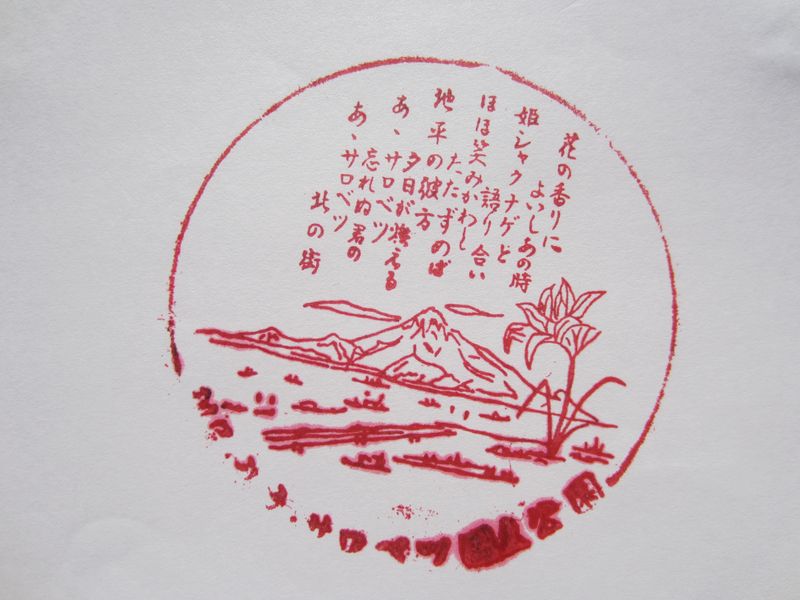 花の香りに
よいしあの時
姫シャクナゲと
語り合い
ほほ笑みかわし
たたずめば
地平の彼方
夕日が燃える
あゝサロベツ
忘れぬ君の
あゝサロベツ
北の街
サロベツ国立公園